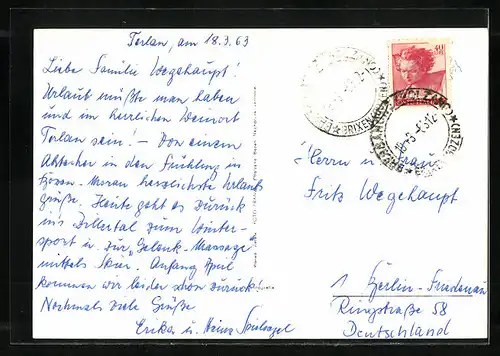 Terlan, am 18.3.63
Liebe Familie Wegehaupt!
Urlaub müßte man haben
und im herrlichen Weinort
Terlan sein! – Von einem
Abstecher in den Frühling in
Bozen-Meran herzlichste Urlaubs
grüße. Heute geht es zurück
ins Zillertal zum Winter-
sport u. zur "Gelenk-Massage"
mittels Skier. Anfang April
kommen wir leider schon zurück!
Nochmals viele Grüße
Erika u. Heinz
Herrn u. Frau
Fritz Wegehaupt
1 Berlin-Friedenau
Ringstraße 58
Deutschland